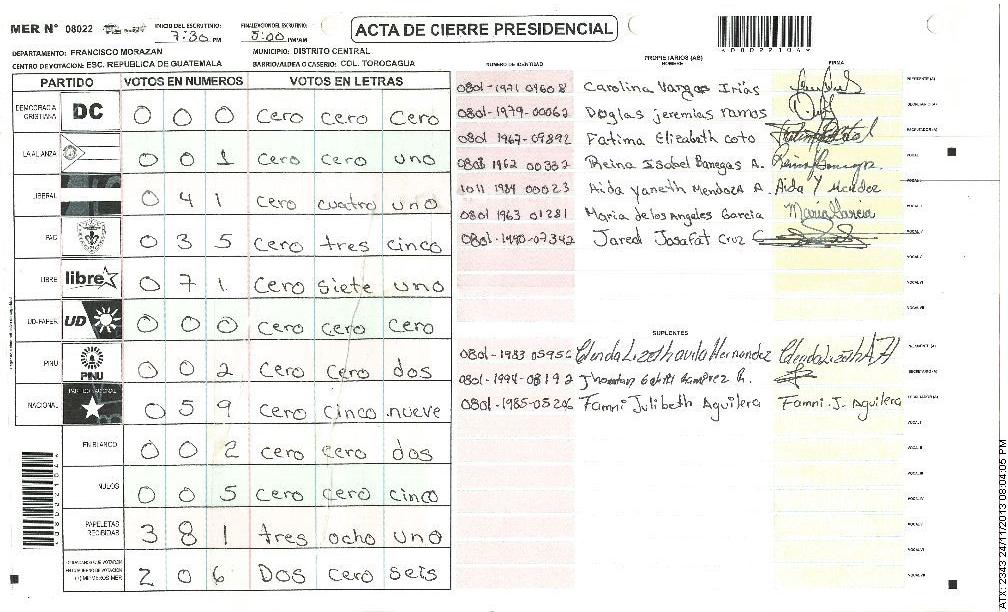 MER N° 08022
INICIO DEL ESCRUTINIO:
7:30 PM
FINALIZACION DEL ESCRUTINIO:
5:00 PM/AM
ACTA DE CIERRE PRESIDENCIAL
DEPARTAMENTO: FRANCISCO MORAZAN
MUNICIPIO: DISTRITO CENTRAL
CENTRO DE VOTACION: ESC. REPUBLICA DE GUATEMALA
BARRIO/ALDEA O CASERIO: COL. TOROCAGUA
PARTIDO VOTOS EN NUMEROS VOTOS EN LETRAS
DEMOCRACIA CRISTIANA DC 0 0 0 cero cero cero
LA ALIANZA 0 0 1 cero cero uno
LIBERAL 0 4 1 cero cuatro uno
PAC 0 3 5 cero tres cinco
LIBRE libre 0 7 1 cero siete uno
UD-FAPER UD 0 0 0 cero cero cero
PINU PINU 0 0 2 cero cero dos
NACIONAL 0 5 9 cero cinco nueve
EN BLANCO 0 0 2 cero cero dos
NULOS 0 0 5 cero cero cinco
PAPELETAS RECIBIDAS 3 8 1 tres ocho uno
2 0 6 DOS cero seis
NUMERO DE IDENTIDAD
PROPIETARIOS (AS)
NOMBRE
FIRMA
0801-1971 09608 Carolina Vargas Irias PRESIDENTE (A)
0801-1979-00062 Doglas jeremias ramos SECRETARIO (A)
0801 1967-09892 Fatima Elizabeth Coto ESCRUTADOR (A)
0801 1962 00332 Reina Isabel Banegas A. VOCAL I
1011 1984 00023 Aida Yaneth Mendoza A Aida Y Mendoz
0801 1963 01281 Maria de los Angeles Garcia Maria Garcia
0801-1990-07342 Jared Josafat Cruz C
SUPLENTES
0801-1983 05952 Glenda Lizeth avila Hernandez
0801-1994-08192
0801-1985-05206 Famni Julibeth Aguilera Famni. J. Aguilera
ATX: 2343 24/11/2013 08:04:05 PM